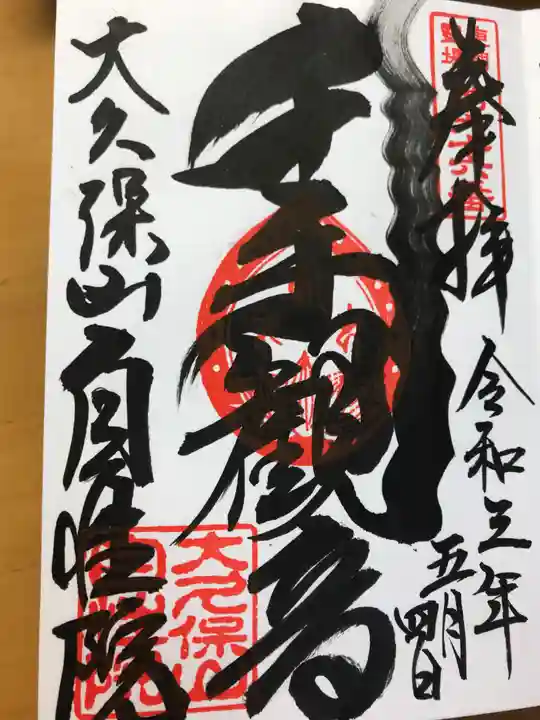 奉拝
令和三年
五月四日
千手観音
大久保山自性院
大久保山